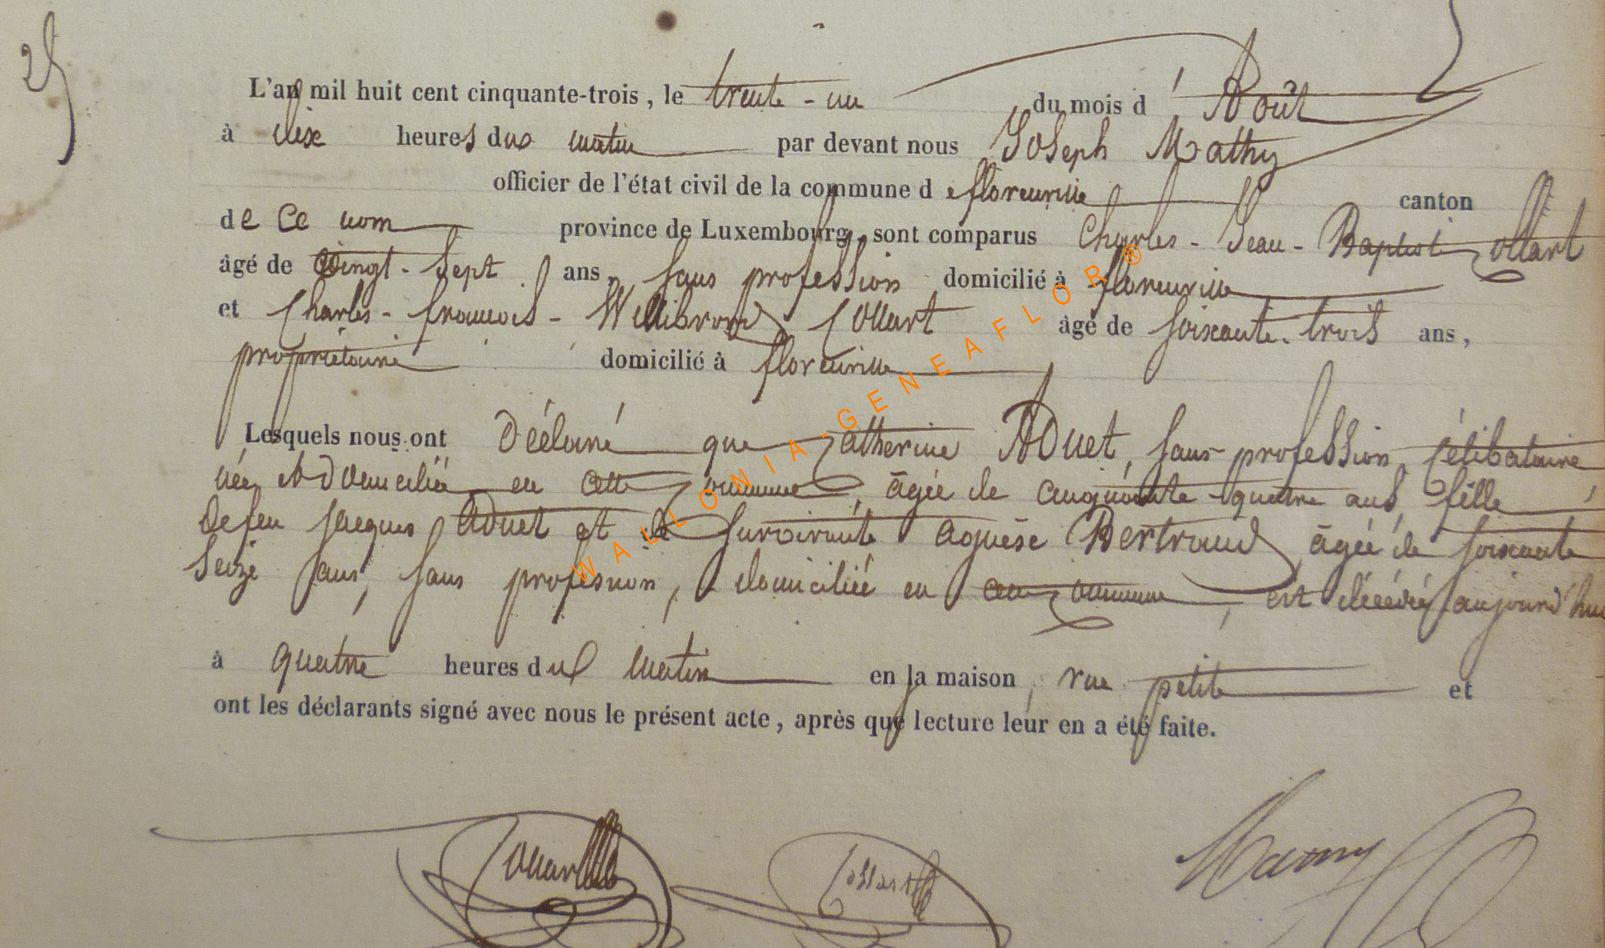 25
L'an mil huit cent cinquante-trois, le trente-un du mois d'Août
à dix heures du matin par devant nous Joseph Mathy
officier de l'état civil de la commune de florenville canton
de ce nom province de Luxembourg, sont comparus Charles-Jean-Baptist Collart
âgé de vingt-sept ans, sans profession domicilié à florenville
et Charles-françois-Willibrord Collart âgé de soixante-trois ans,
propriétaire domicilié à florenville
Lesquels nous ont déclaré que Catherine Aduet, sans profession célibataire
née et domiciliée en cette commune, âgée de cinquante quatre ans, fille
de feu jacques Aduet et de survivante agnèse Bertrand âgée de soixante
seize ans, sans profession, domiciliée en cette commune, est décédée aujourd'hui
à quatre heures du matin en la maison, rue petite et
ont les déclarants signé avec nous le présent acte, après que lecture leur en a été faite.
Collart Collart Mathy
WALLONIA-GENEAFLOR®